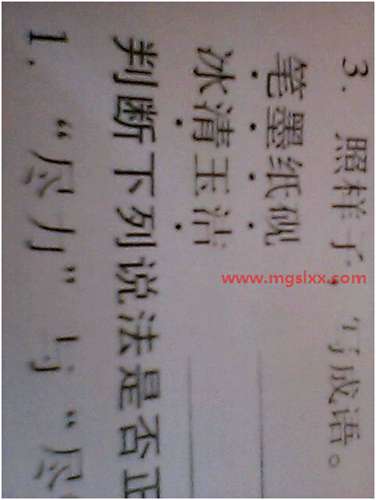 3. 照样子，写成语。
笔墨纸砚
冰清玉洁
判断下列说法是否正
1. “尽力”与“尽
www.mgslxx.com